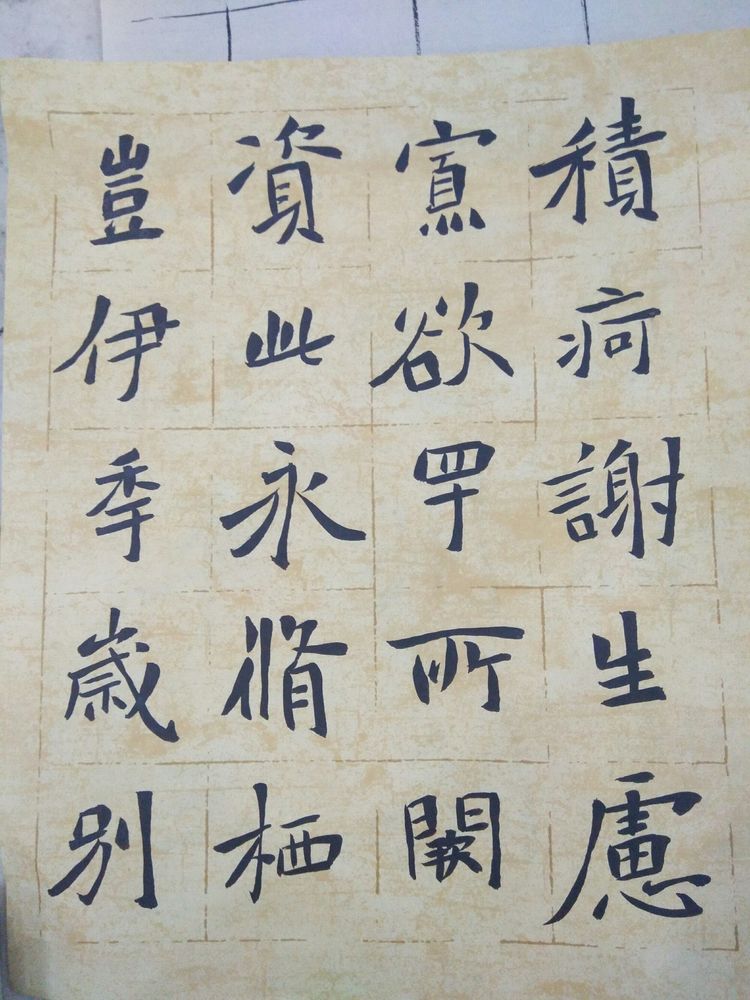 積疴謝生慮
寡欲罕所闕
資此永脩栖
豈伊秊歲別